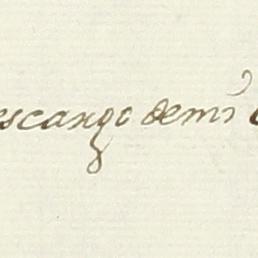 escanço demi